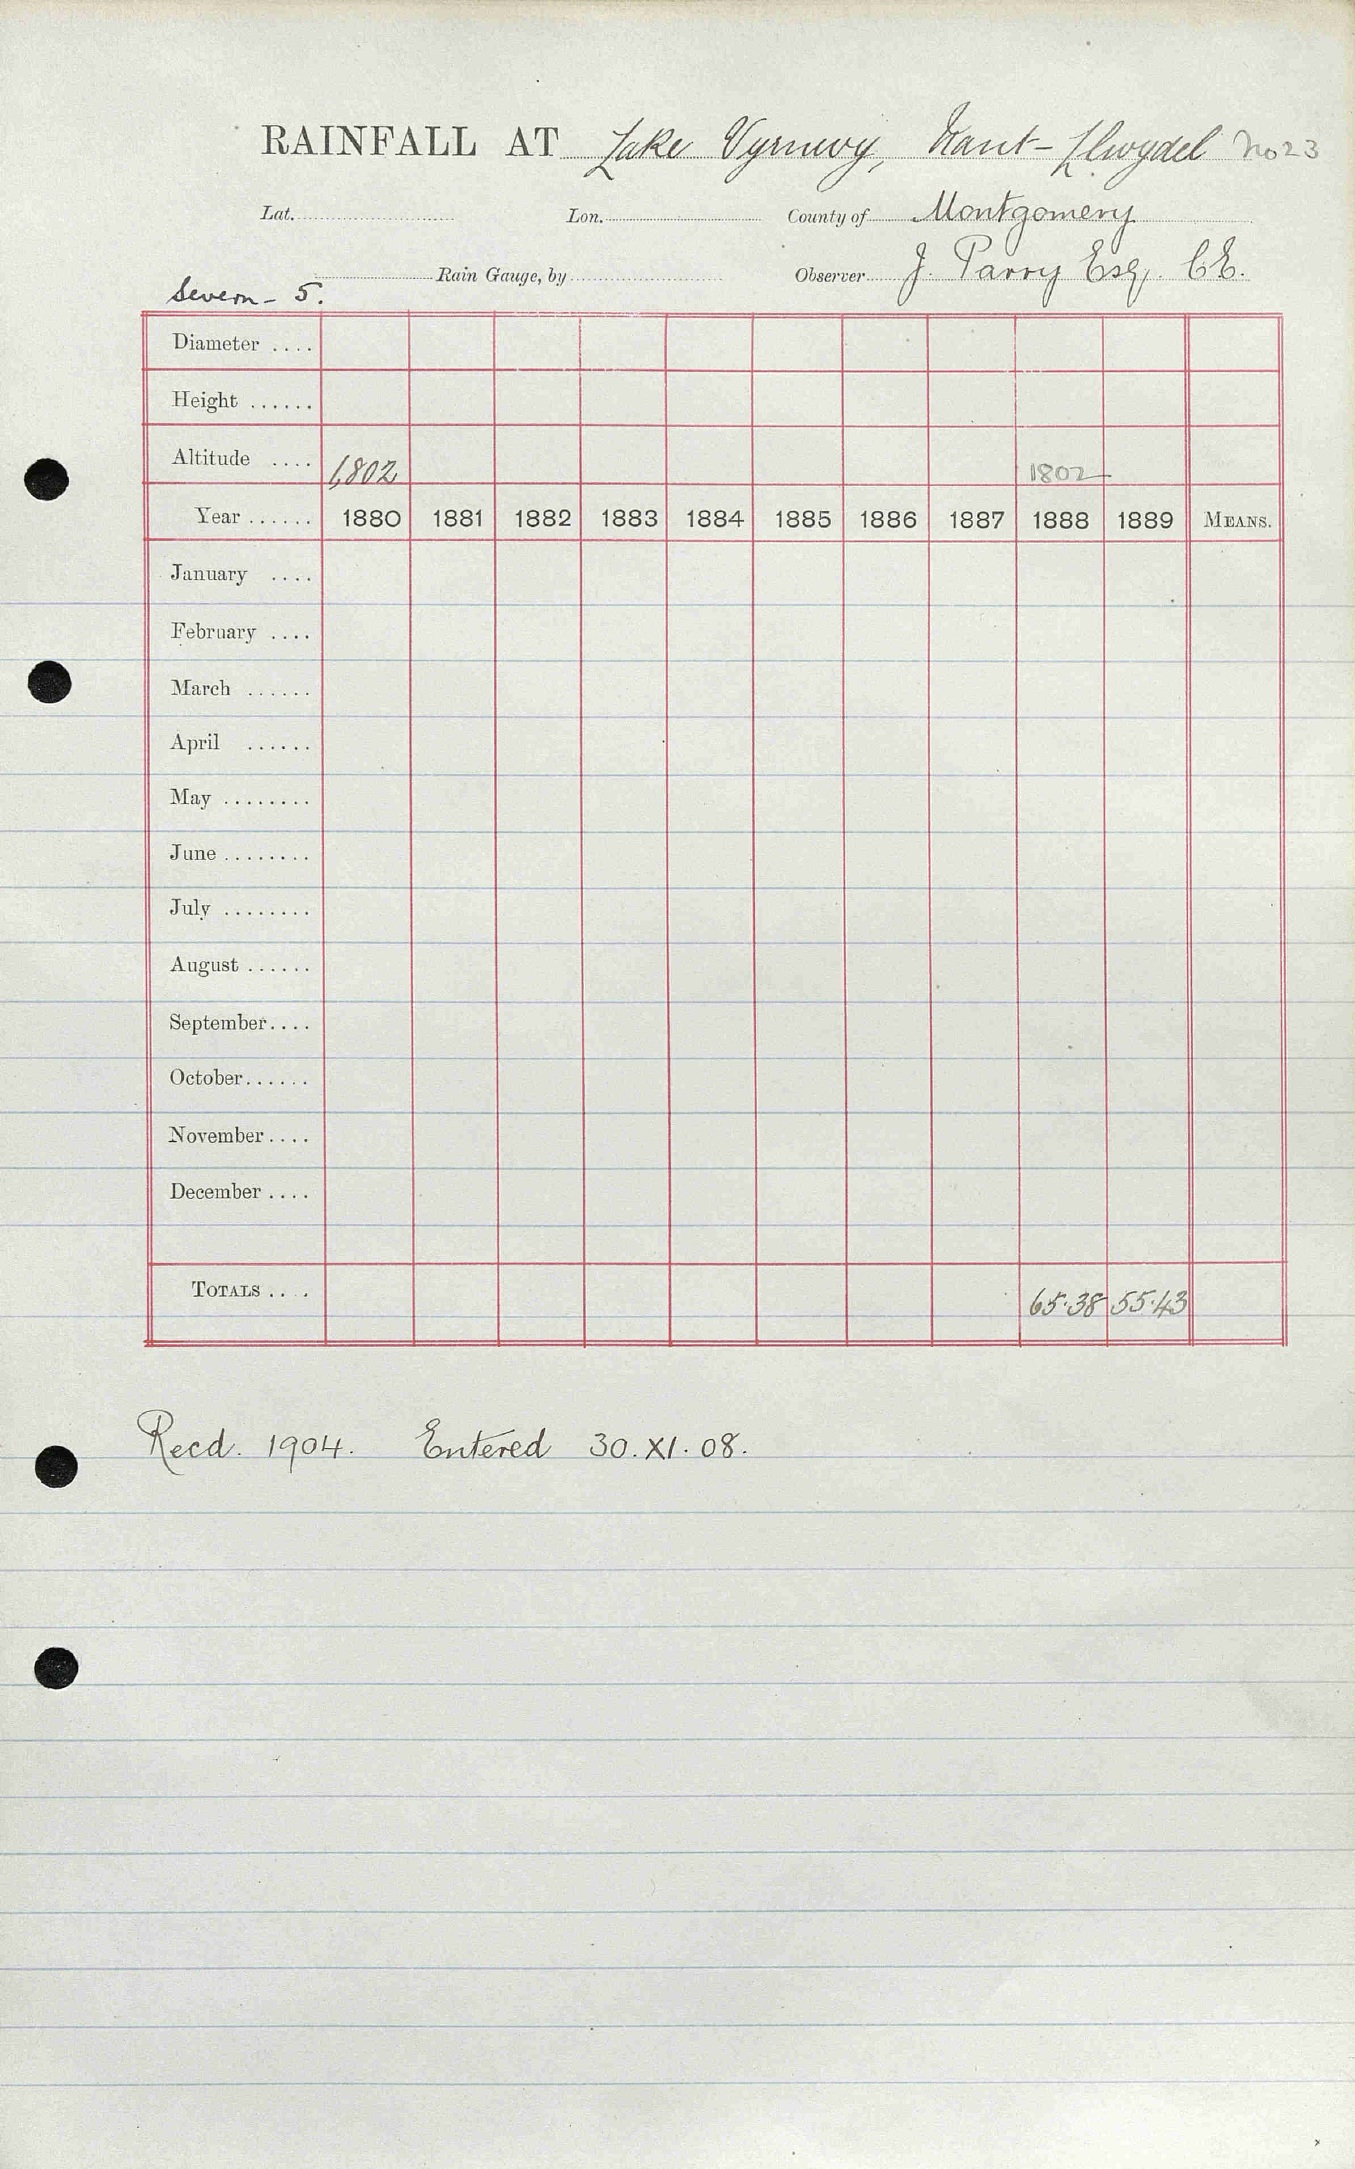 RAINFALL AT Lake Vyrnwy, Nant-Llwydel No 23
Lat. Lon. County of Montgomery
Rain Gauge, by Observer J. Parry Esq. C.E.
Severn - 5.
Diameter ....
Height ......
Altitude .... 1,802 1802
Year ...... 1880 1881 1882 1883 1884 1885 1886 1887 1888 1889 MEANS.
January ....
February ....
March ......
April ......
May ........
June ........
July ........
August ......
September....
October......
November....
December ....
TOTALS .... 65.38 55.43
Recd. 1904. Entered 30.XI.08.